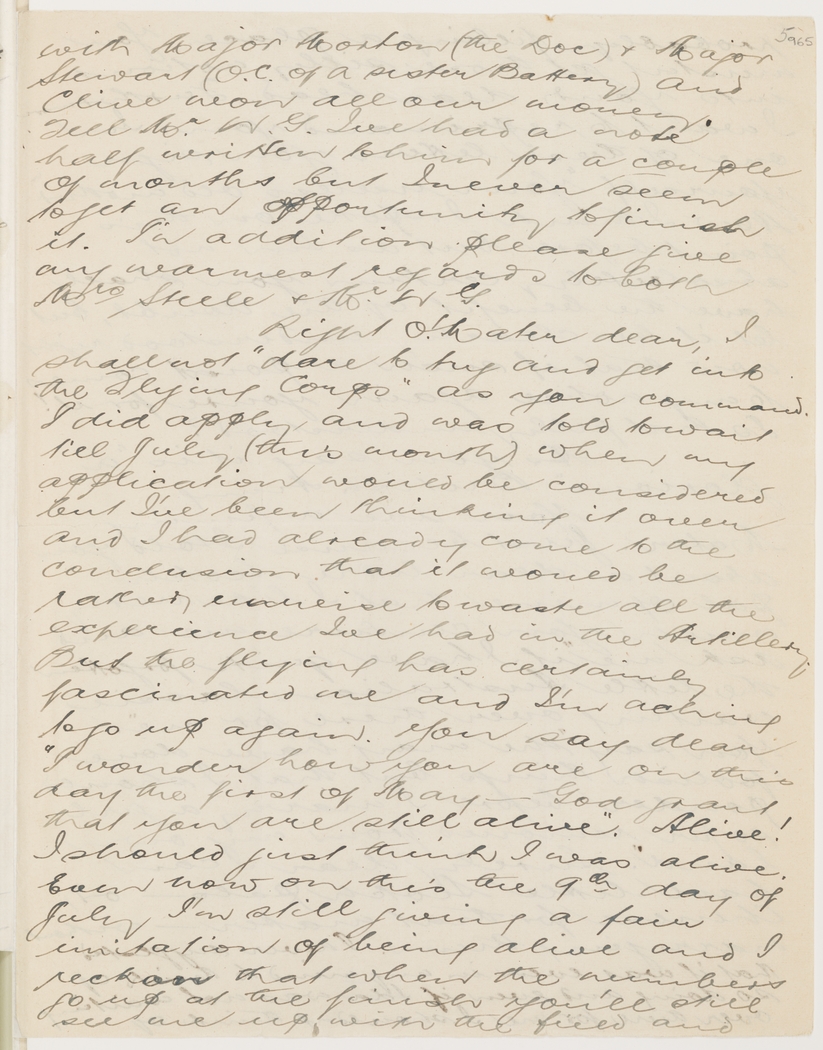 5965
with Major Morton (the Doc) & Major
Stewart (O.C. of a sister Battery) and
Clive won all our money.
Tell Mr. W.G. I've had a note
half written to him for a couple
of months but I never seem
to get an opportunity to finish
it. In addition please give
my warmest regards to both
Mrs Steele & Mr. W.G.
Right O! Mater dear, I
shall not "dare to try and get into
the Flying Corps" as you command.
I did apply, and was told to wait
till July (this month) when my
application would be considered
but I've been thinking it over
and I had already come to the
conclusion that it would be
rather unwise to waste all the
experience I've had in the Artillery.
But the flying has certainly
fascinated me and I'm aching
to go up again. You say dear
"I wonder how you are on this
day the first of May – God grant
that you are still alive". Alive!
I should just think I was alive.
Even now on this the 9th day of
July I'm still giving a fair
imitation of being alive and I
reckon that when the numbers
go up at the finish you'll still
see me up with the field and